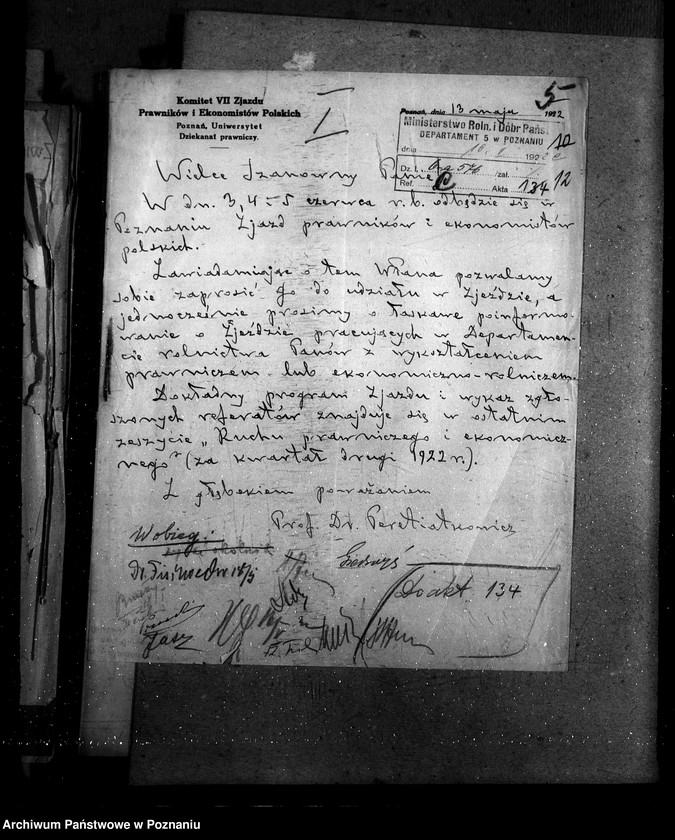 5
Komitet VII Zjazdu
Prawników i Ekonomistów Polskich
Poznań, Uniwersytet
Dziekanat prawniczy.
I
Poznań, dnia 13 maja 1922
Ministerstwo Roln. i Dóbr Państ.
DEPARTAMENT 5 w POZNANIU
dnia 192
Dz. t. zał.
Ref. C Akta 134
10
12
Wielce Szanowny Panie
W dn. 3, 4 i 5 czerwca r. b. odbędzie się w
Poznaniu Zjazd prawników i ekonomistów
polskich.
Zawiadamiając o tem WPana pozwalamy
sobie zaprosić Go do udziału w Zjeździe, a
jednocześnie prosimy o łaskawe poinformo-
wanie o Zjeździe pracujących w Departamen-
cie rolnictwa Panów z wykształceniem
prawniczem lub ekonomiczno-rolniczem.
Dokładny program Zjazdu i wykaz zgło-
szonych referatów znajduje się w ostatnim
zeszycie „Ruchu prawniczego i ekonomicz-
nego" (za kwartał drugi 1922 r.).
Z głębokiem poważaniem
Prof. Dr. Peretiatkowicz
W obieg:
Do akt 134
Archiwum Państwowe w Poznaniu